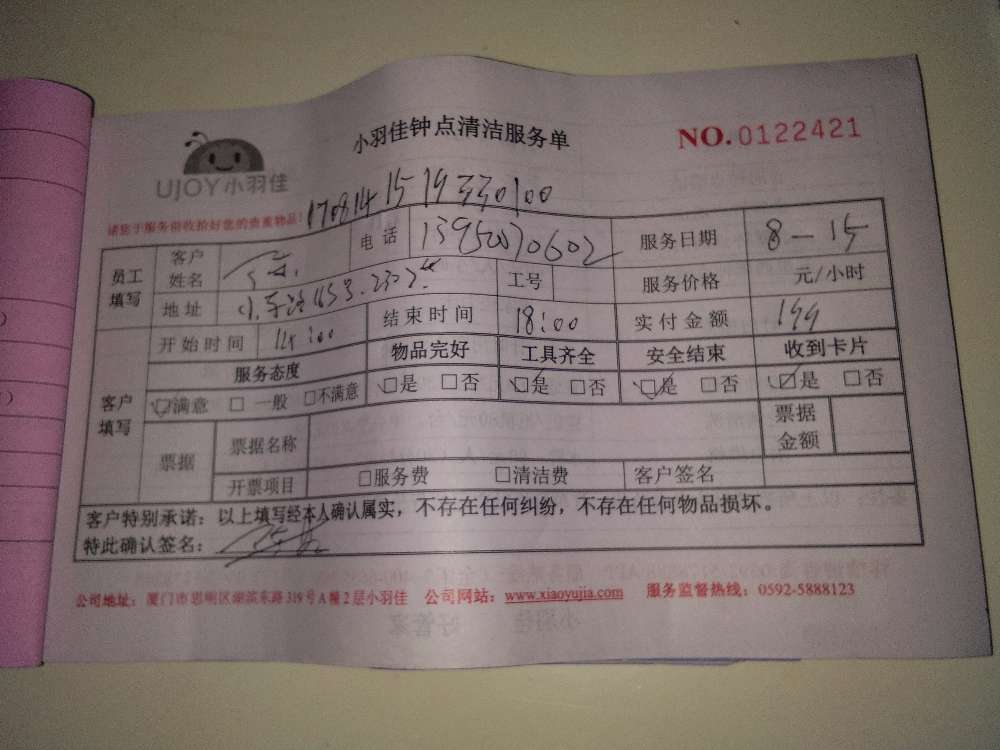 小羽佳钟点清洁服务单
NO.0122421
UJOY小羽佳
请您于服务前收拾好您的贵重物品!
员工填写 客户姓名 电话 13950070602 服务日期 8-15
地址 工号 服务价格 元/小时
开始时间 14:00 结束时间 18:00 实付金额 199
客户填写 服务态度 物品完好 工具齐全 安全结束 收到卡片
☑满意 □一般 □不满意 ☑是 □否 ☑是 □否 ☑是 □否 ☑是 □否
票据 票据名称 票据金额
开票项目 □服务费 □清洁费 客户签名
客户特别承诺:以上填写经本人确认属实,不存在任何纠纷,不存在任何物品损坏。
特此确认签名:
公司地址:厦门市思明区湖滨东路319号A幢2层小羽佳 公司网站:www.xiaoyujia.com 服务监督热线:0592-5888123